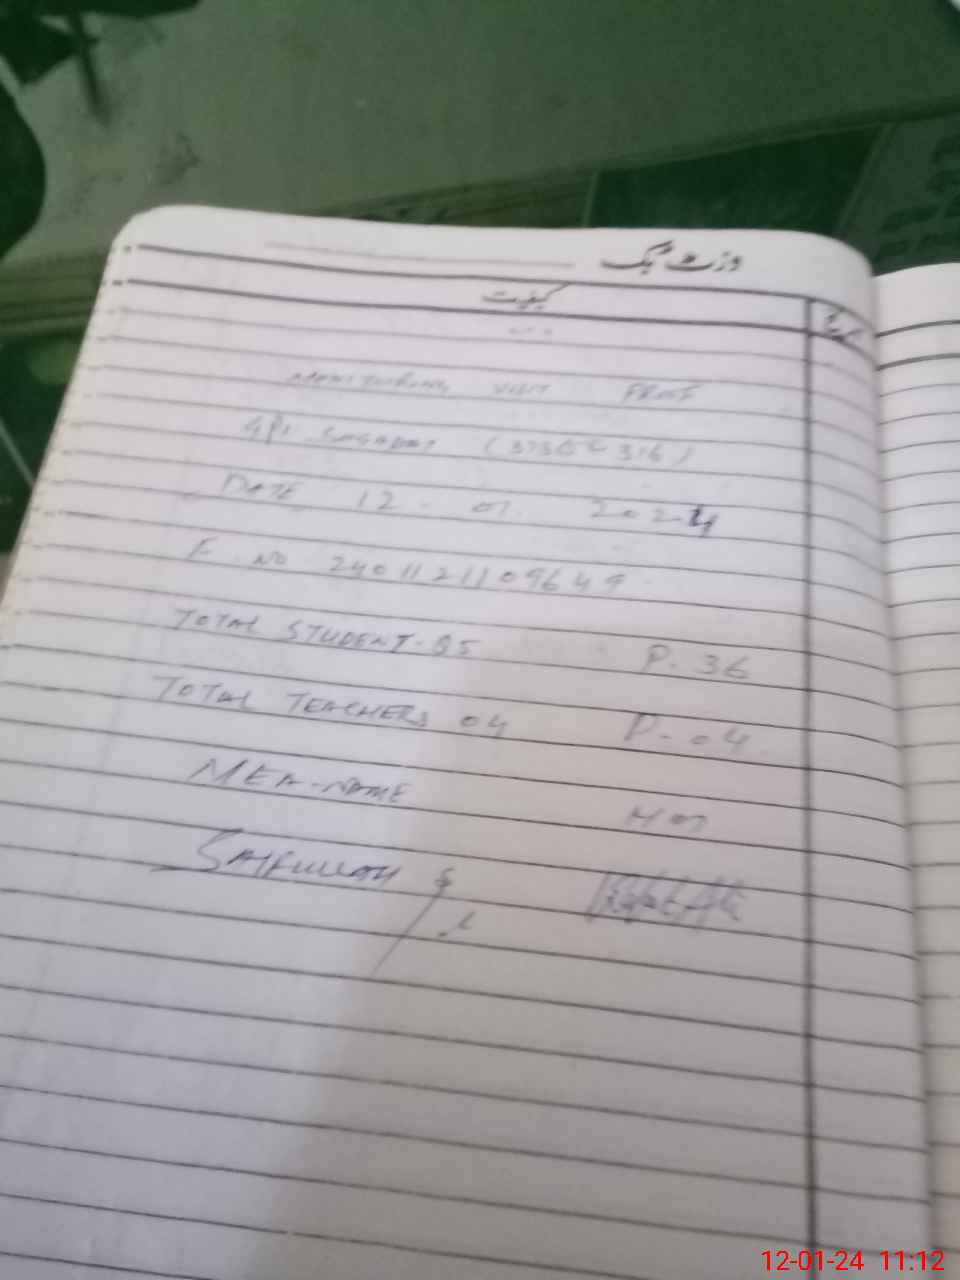 وزٹ بک
کیفیت
MONITORING VISIT PROOF
DATE 12 - 01. 2024
F. NO 2401121109649
TOTAL STUDENT-85 P. 36
TOTAL TEACHERS 04 P-04
MEA-NAME
SAIFULLAH
12-01-24 11:12